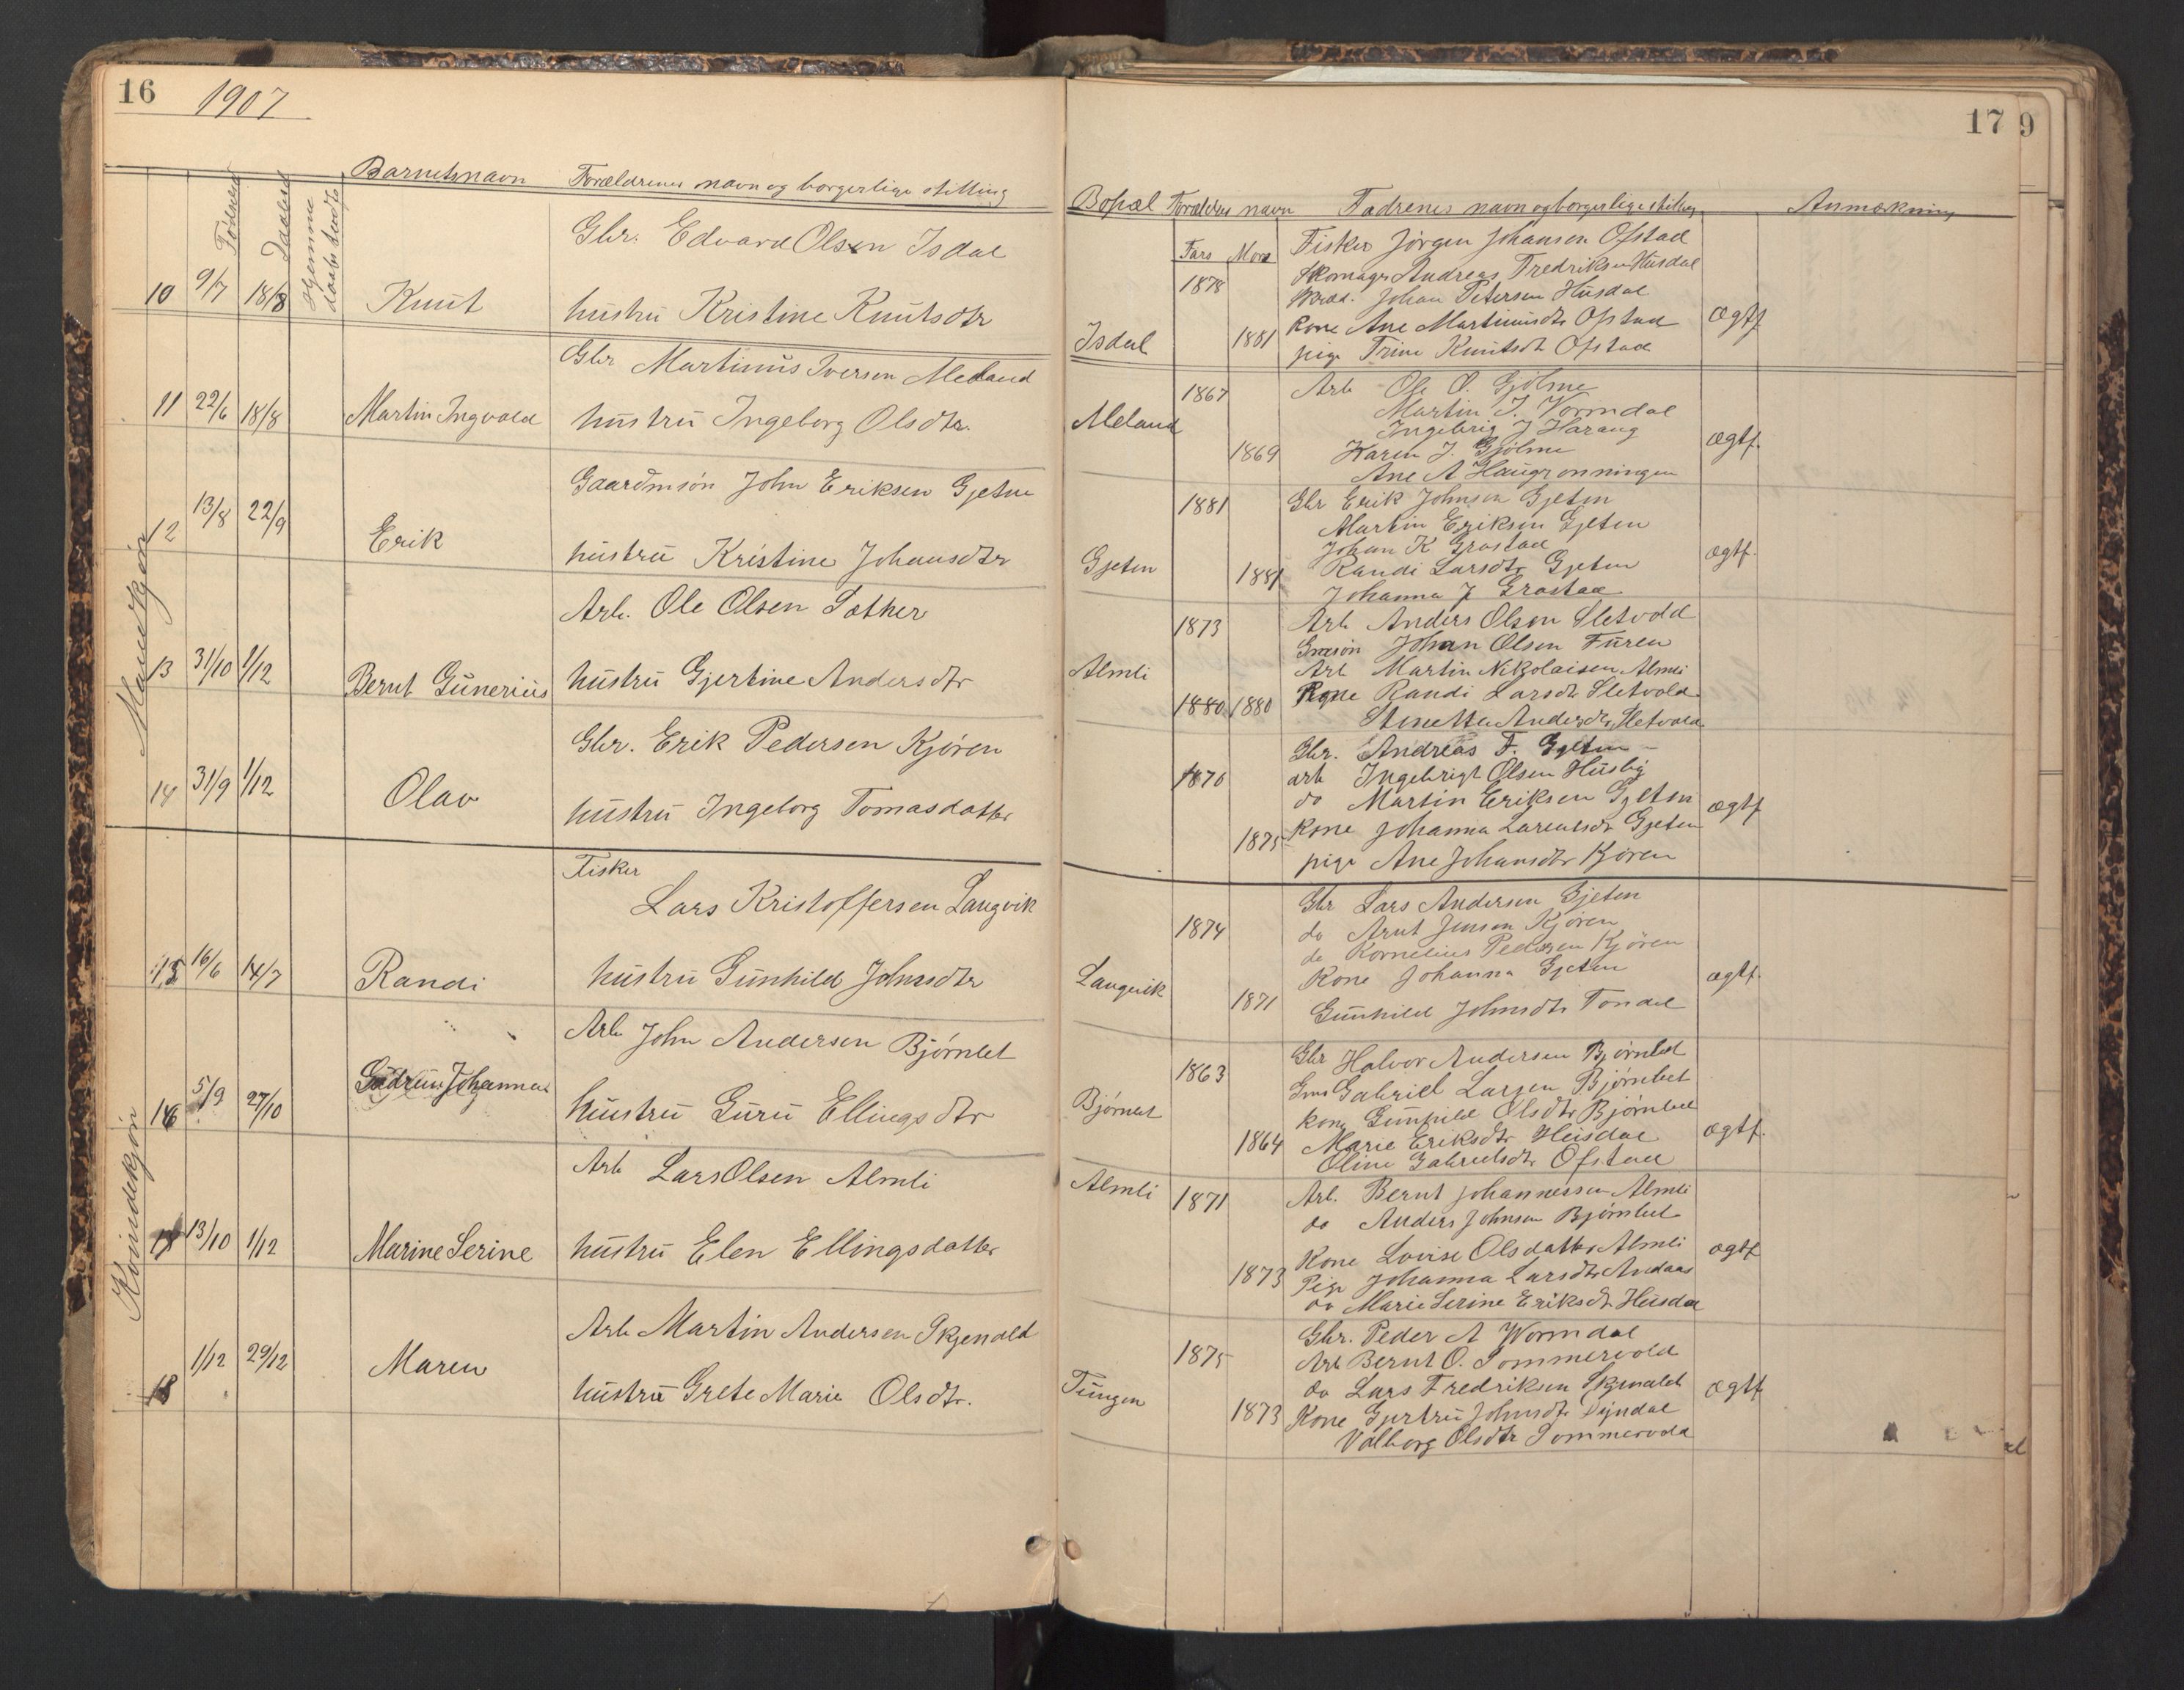 16 1907
Fødsels Daabs Hjemme daabs stedts
Barnets navn Forældrenes navn og borgerlige stilling
Mandkjøn
Gbr. Edvard Olsen Isdal
10 9/7 18/8 Knut hustru Kristine Knutsdtr
Gbr Martinus Iversen Meland
11 22/6 18/8 Martin Ingvald hustru Ingeborg Olsdtr.
Gaardmsøn John Eriksen Gjeten
12 13/8 22/9 Erik hustru Kristine Johansdtr
Arb. Ole Olsen Sæther
13 31/10 1/12 Bernt Gunerius hustru Gjertine Andersdtr
Gbr. Erik Pedersen Kjøren
14 31/9 1/12 Olav hustru Ingeborg Tomasdatter
Kvindekjøn
Fisker
Lars Kristoffersen Langvik
15 16/6 14/7 Randi hustru Gunhild Johnsdtr
Arb John Andersen Bjørnbet
16 5/9 27/10 Gudrun Johanna hustru Guru Ellingsdtr
Arb Lars Olsen Almli
17 13/10 1/12 Marine Serine hustru Elen Ellingsdatter
Arb Martin Andersen Skjenald
18 1/12 29/12 Maren hustru Grete Marie Olsdtr.
17 9
Bopæl Forældres navn Fadrenes navn og borgerlige stilling Anmærkning
Fars Mors Fisker Jørgen Johansen Ofstad
1878 Skomager Andreas Fredriksen Husdal
Johan Petersen Husdal
Isdal 1881 Kone Ane Martinusdtr Ofstad ægtf
pige Trine Knutsdtr Ofstad
1867 Arb Ole O. Gjølme
Meland Martin J. Vormdal
Ingebrig J Harang ægtf.
1869 Karen J. Gjølme
Ane A Haugrønningen
1881 Gbr Erik Johnsen Gjeten
Martin Eriksen Gjeten
Gjeten Johan K Grøstad ægtf.
1881 Randi Larsdtr Gjeten
Johanna J Grøstad
1873 Arb Anders Olsen Sletvold
Gmsøn Johan Olsen Furen
Almli Arb Martin Nikolaisen Almli
1880 1880 Kone Randi Larsdtr Sletvold
Stinetta Andersdtr Sletvold
Gbr. Andreas F. Gjeten
1876 arb Ingebrigt Olsen Husby
do Martin Eriksen Gjeten ægtf
1875 Kone Johanna Larentsdtr Gjeten
pige Ane Johansdtr Kjøren
Gbr Lars Andersen Gjeten
1874 do Arnt Jensen Kjøren
do Kornelius Pedersen Kjøren
Langvik Kone Johanna Gjeten ægtf.
1871 Gunhild Johnsdtr Tondel
Gbr Halvor Andersen Bjørnbet
1863 Gms Gabriel Larsen Bjørnbet
Bjørnbet kone Gunhild Olsdtr Bjørnbet
1864 Marie Eriksdtr Husdal ægtf.
Oline Gabrielsdtr Ofstad
Almli 1871 Arb. Bernt Johannessen Almli
do Anders Johnsen Bjørnbet
Kone Lovise Olsdatter Almli ægtf
1873 Pige Johanna Larsdtr Andaas
do Marie Serine Eriksdtr Husdal
Gbr. Peder A Wormdal
1875 Arb Bernt O. Sommervold
Tungen do Lars Fredriksen Skjenald ægtf
1873 Kone Gjertru Johnsdtr Dyndal
Valborg Olsdtr Sommervold